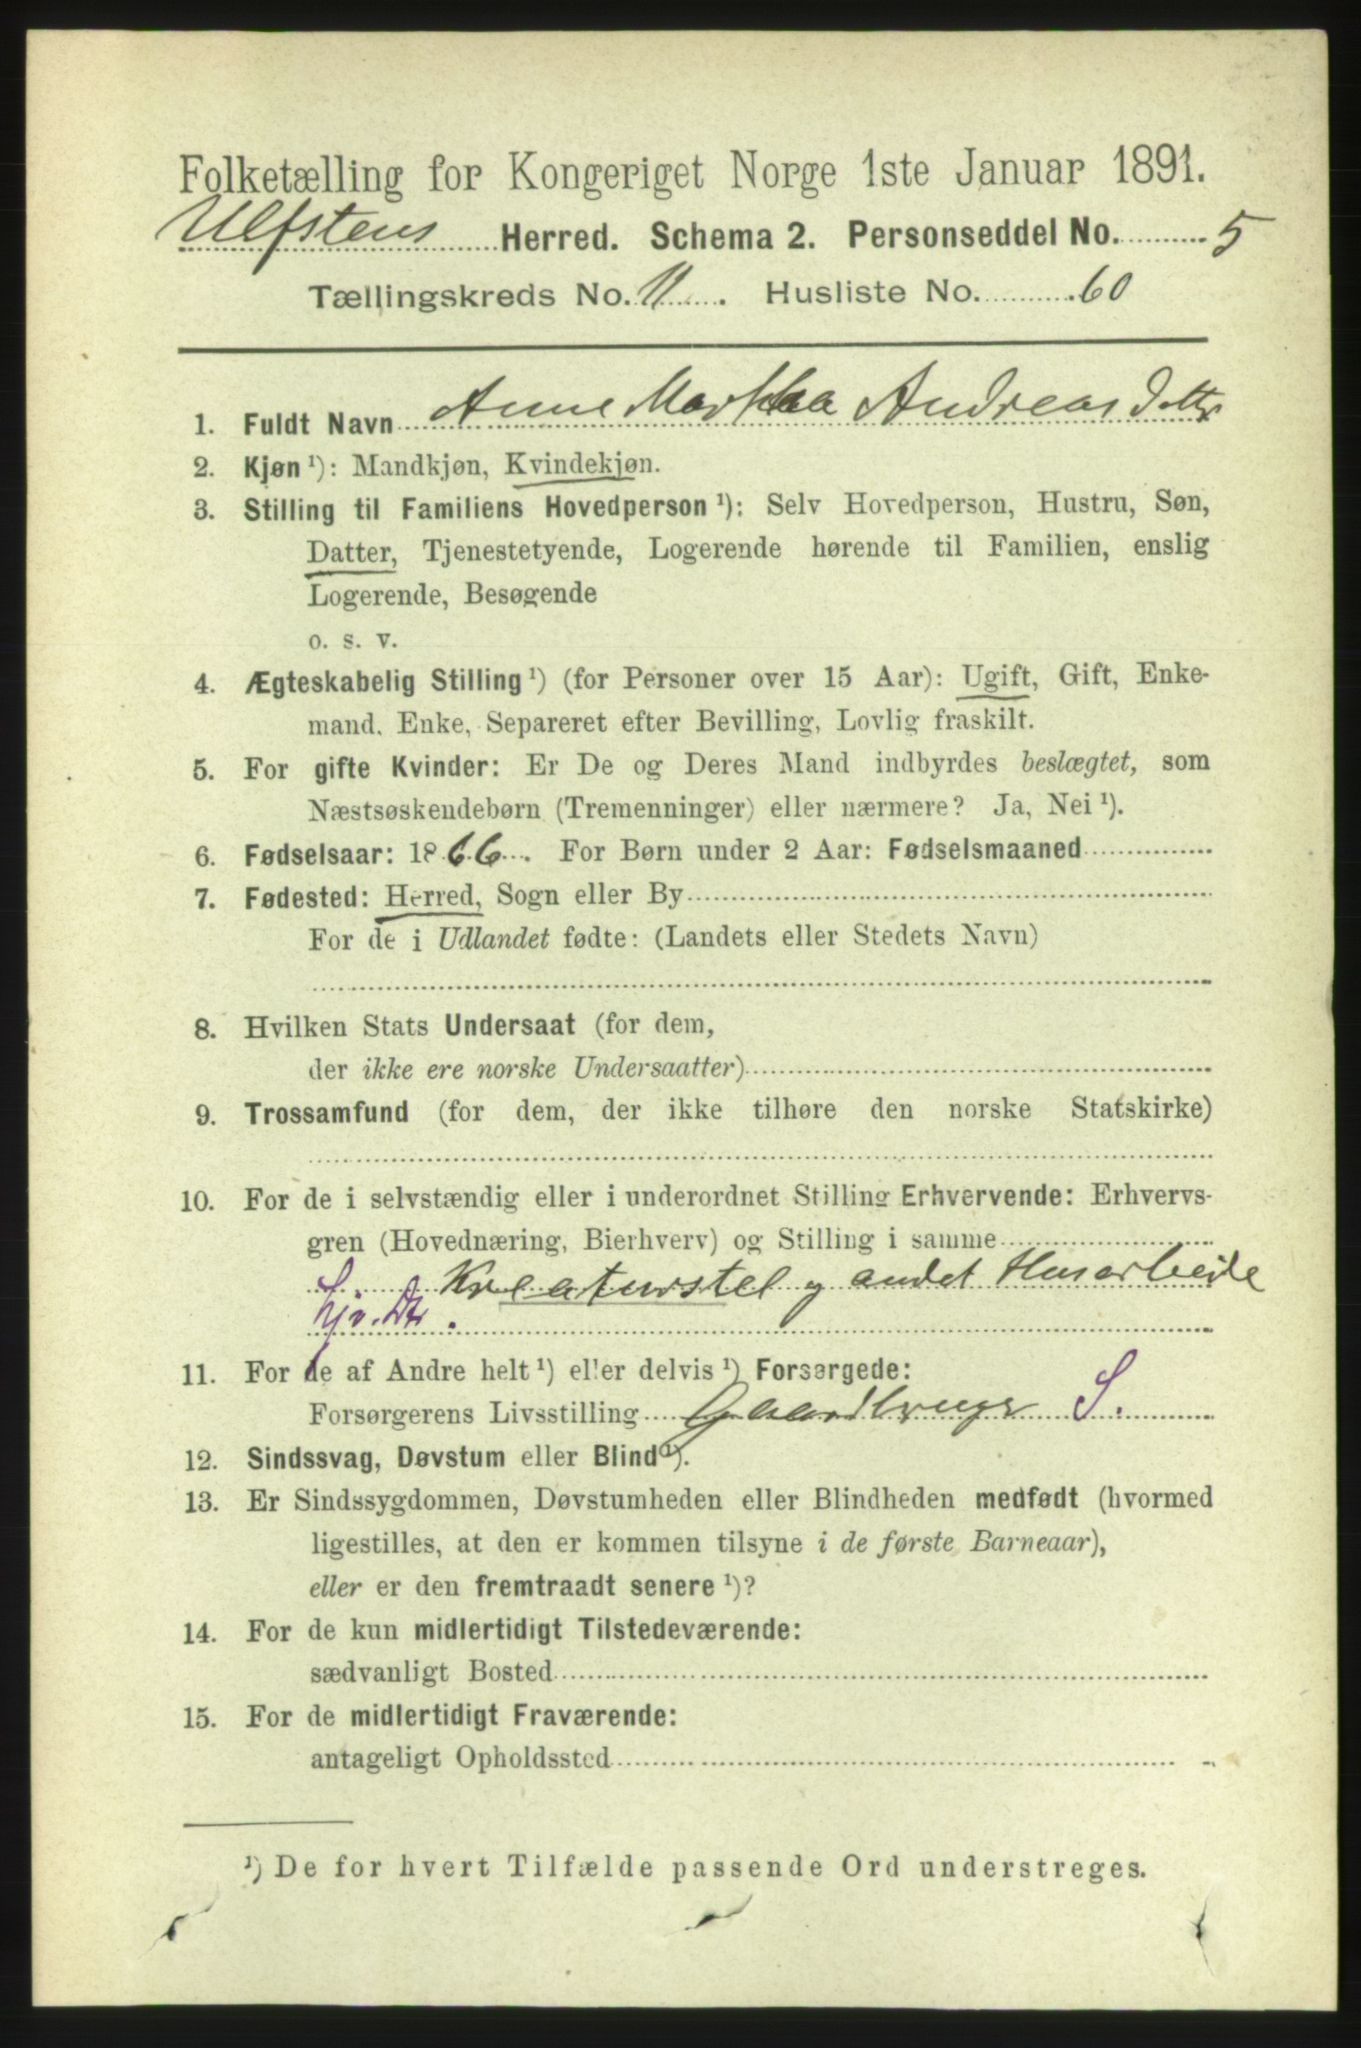 Folketælling for Kongeriget Norge 1ste Januar 1891.
Ulfstens Herred. Schema 2. Personseddel No. 5
Tællingskreds No. 11. Husliste No. 60
1. Fuldt Navn Anne Marthaa Andreasdattr
2. Kjøn ¹): Mandkjøn, Kvindekjøn.
3. Stilling til Familiens Hovedperson ¹): Selv Hovedperson, Hustru, Søn,
Datter, Tjenestetyende, Logerende hørende til Familien, enslig
Logerende, Besøgende
o. s. v.
4. Ægteskabelig Stilling ¹) (for Personer over 15 Aar): Ugift, Gift, Enke-
mand, Enke, Separeret efter Bevilling, Lovlig fraskilt.
5. For gifte Kvinder: Er De og Deres Mand indbyrdes beslægtet, som
Næstsøskendebørn (Tremenninger) eller nærmere? Ja, Nei ¹).
6. Fødselsaar: 1866. For Børn under 2 Aar: Fødselsmaaned
7. Fødested: Herred, Sogn eller By
For de i Udlandet fødte: (Landets eller Stedets Navn)
8. Hvilken Stats Undersaat (for dem,
der ikke ere norske Undersaatter)
9. Trossamfund (for dem, der ikke tilhøre den norske Statskirke)
10. For de i selvstændig eller i underordnet Stilling Erhvervende: Erhvervs-
gren (Hovednæring, Bierhverv) og Stilling i samme
Kreaturstel og andet Husarbeide
11. For de af Andre helt ¹) eller delvis ¹) Forsørgede:
Forsørgerens Livsstilling Gaardbruger S.
12. Sindssvag, Døvstum eller Blind ¹).
13. Er Sindssygdommen, Døvstumheden eller Blindheden medfødt (hvormed
ligestilles, at den er kommen tilsyne i de første Barneaar),
eller er den fremtraadt senere ¹)?
14. For de kun midlertidigt Tilstedeværende:
sædvanligt Bosted
15. For de midlertidigt Fraværende:
antageligt Opholdssted
¹) De for hvert Tilfælde passende Ord understreges.